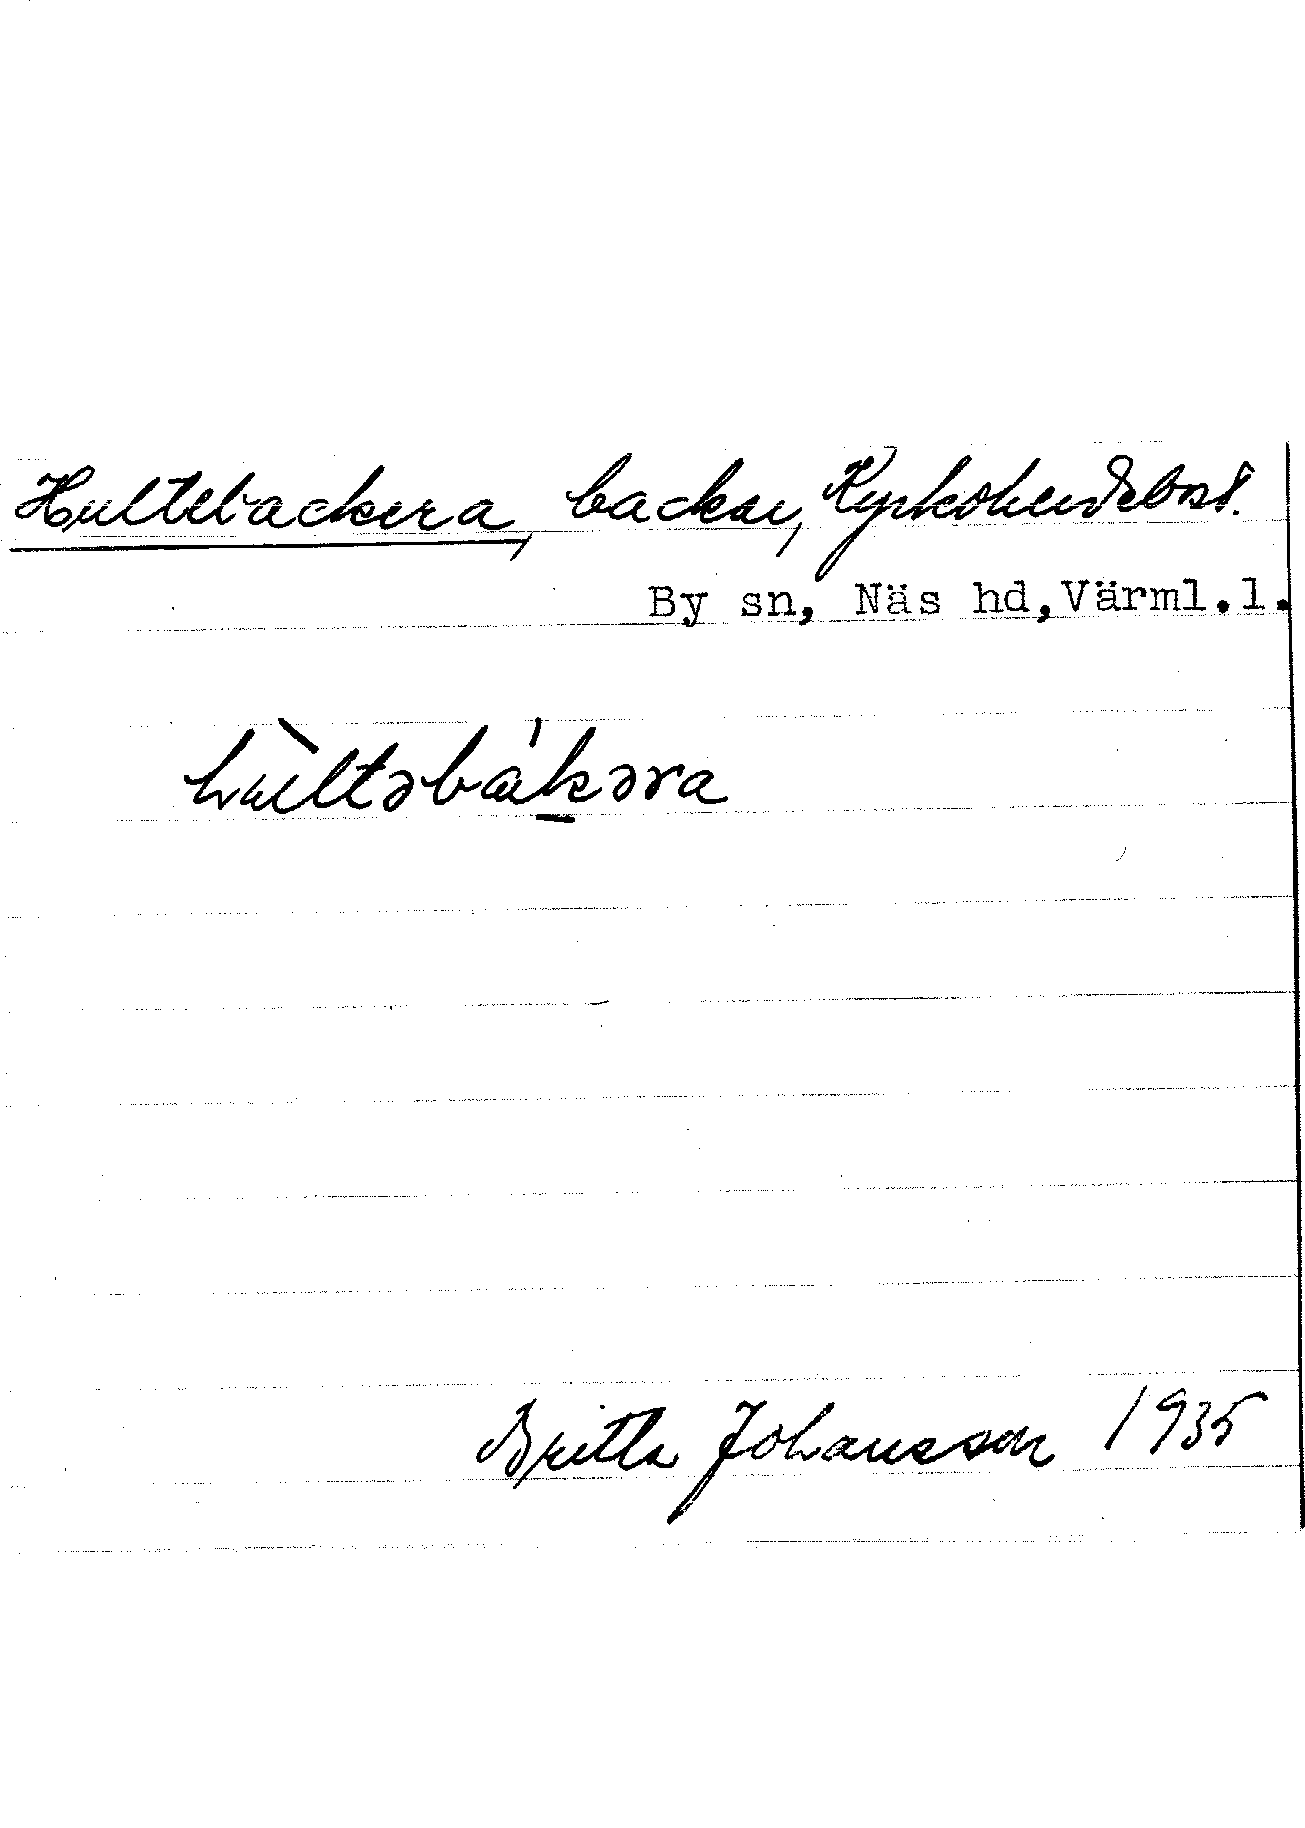 Hultebackera, backar, Kyrkoherdebost.
By sn, Näs hd, Värml. l.
hùltəbákəra
Britta Johansson 1935